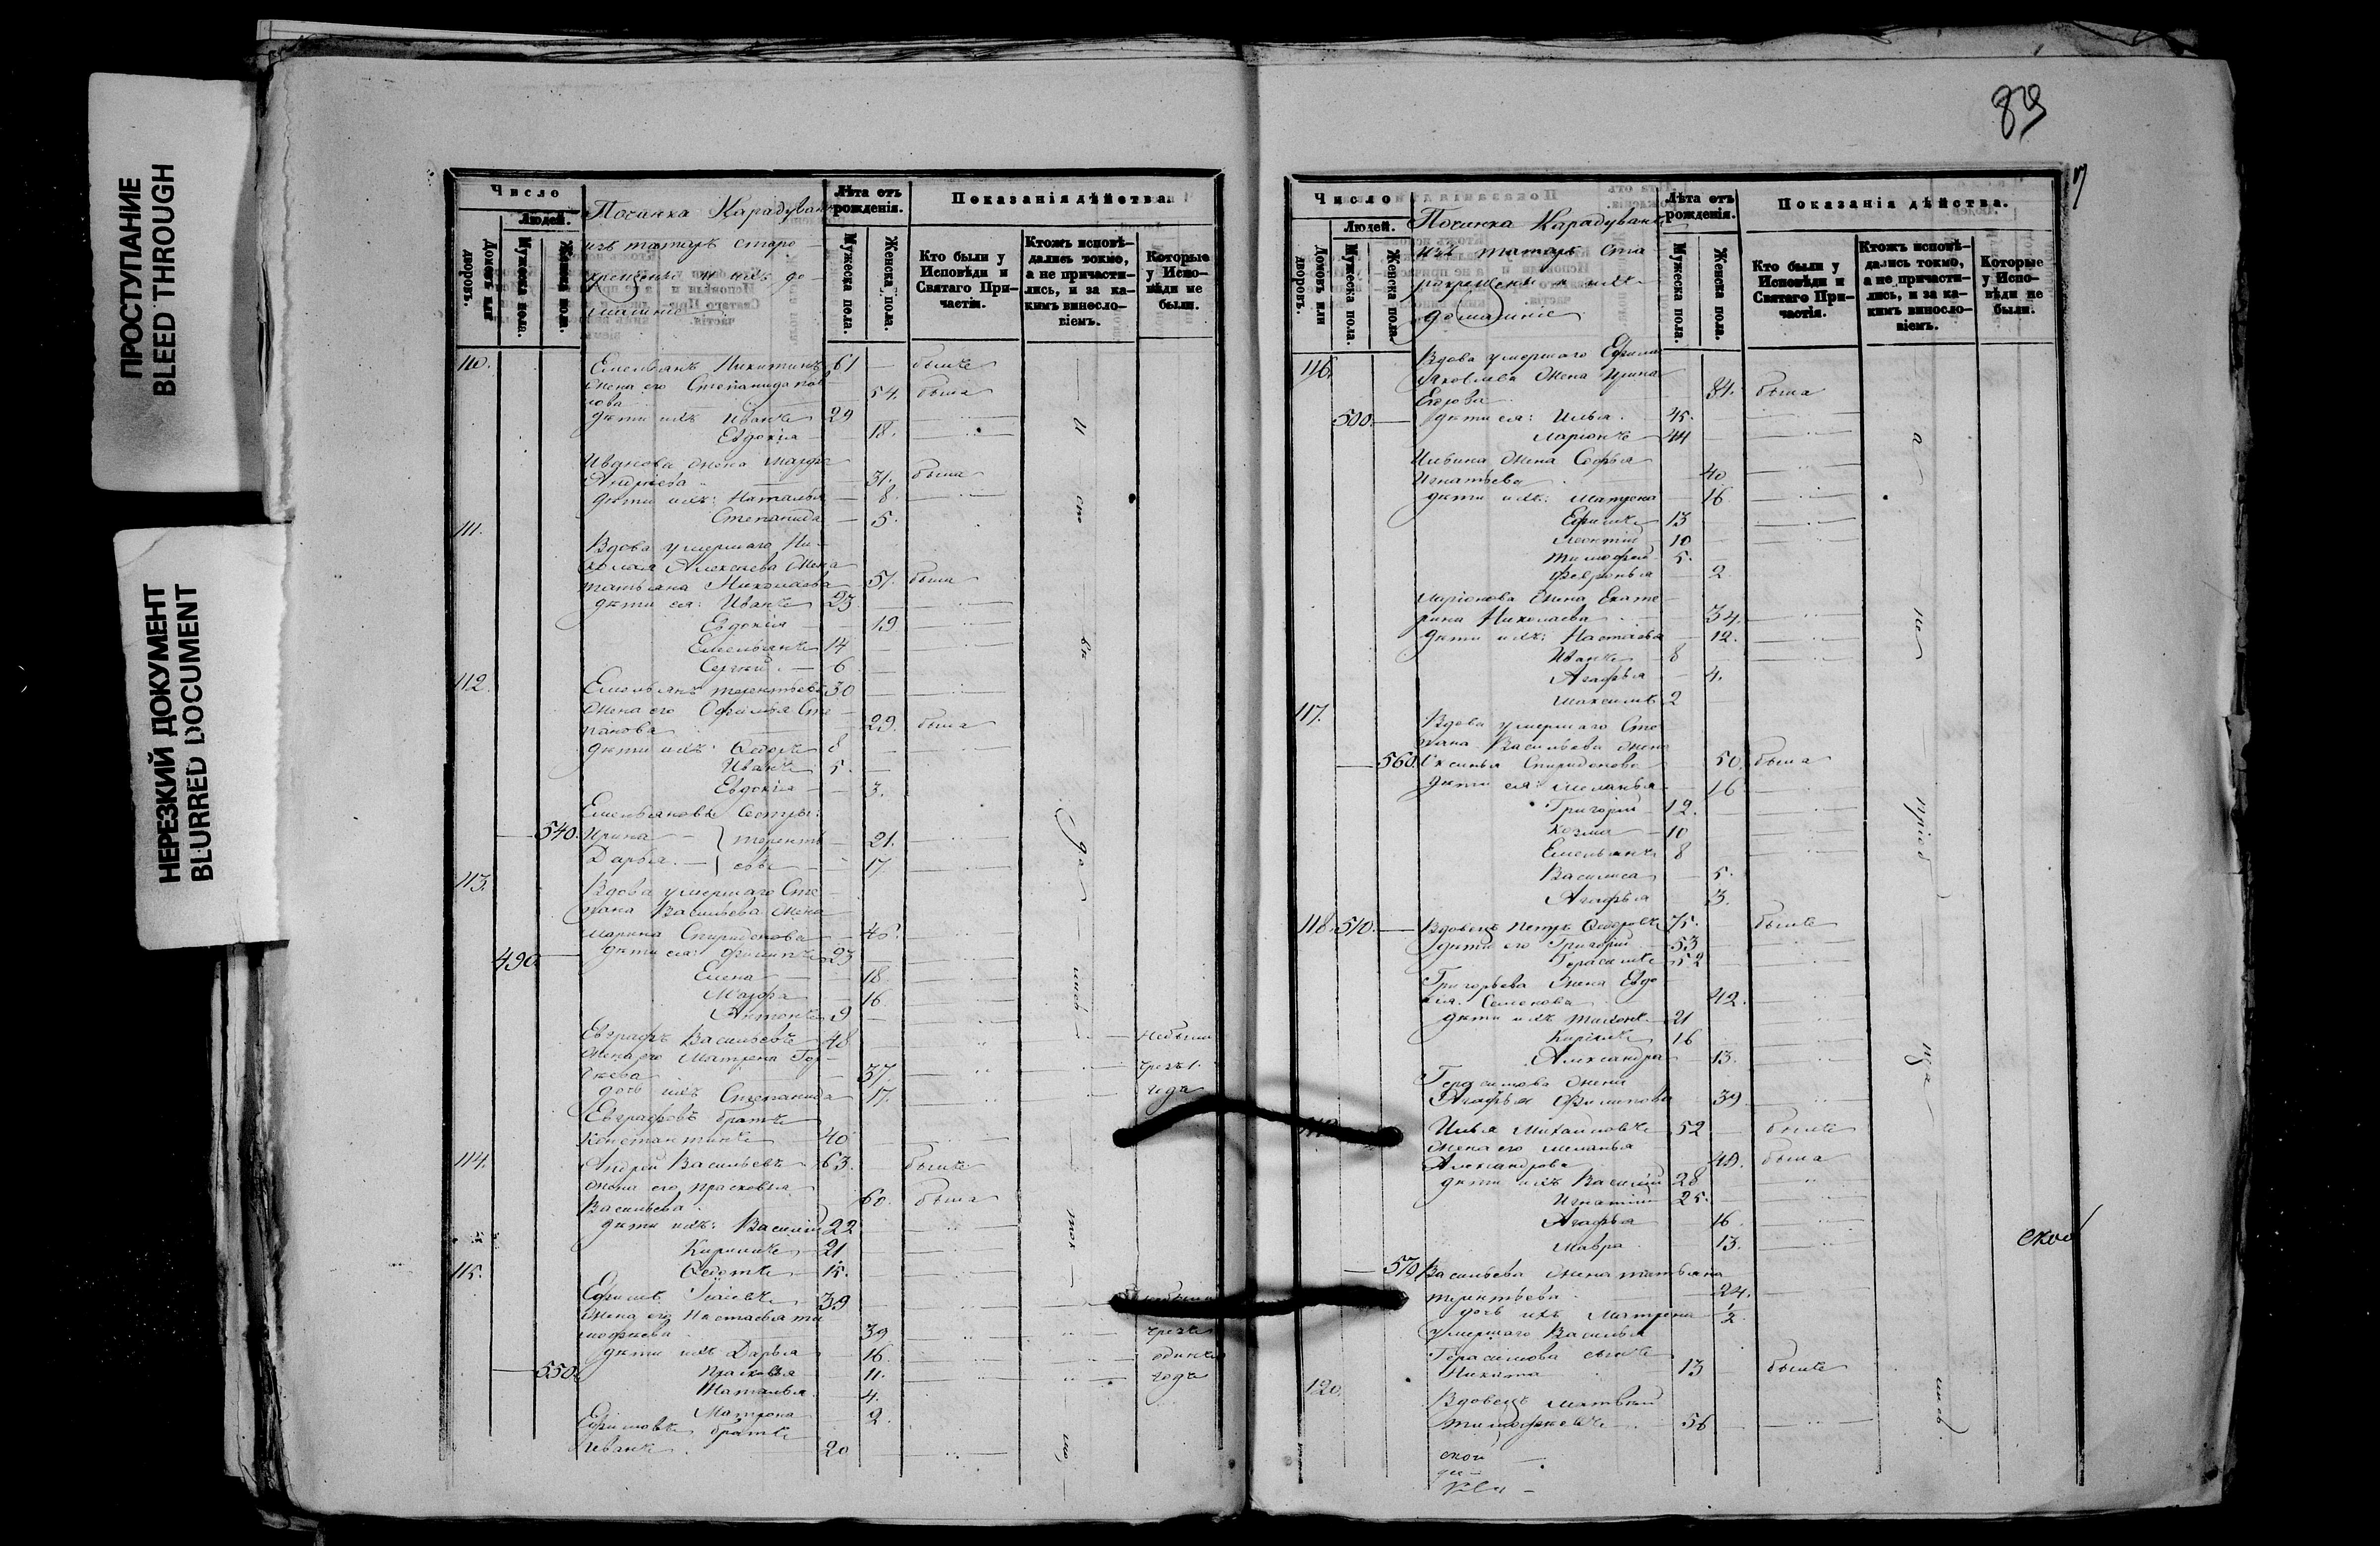 ПРОСТУПАНИЕ
BLEED THROUGH
НЕРЕЗКИЙ ДОКУМЕНТ
BLURRED DOCUMENT
Число
Людей.
Домовъ или дворовъ.
Мужеска пола.
Женска пола.
Починка Карадуванъ
изъ татаръ старо-
крещены и ихъ до-
машніе
Лѣта отъ рожденія.
Мужеска пола.
Женска пола.
Показанія дѣйства.
Кто были у Исповѣди и Святаго Причастія.
Ктожъ исповѣдались токмо, а не причастились, и за какимъ винословіемъ.
Которые у Исповѣди не были.
110. Емельянъ Никитинъ 61 — былъ
жена его Степанида
54. была
дѣти ихъ Иванъ 29
Евдокія — 18.
Иванова жена Марфа
Андреева — 31. была
дѣти ихъ: Наталья — 8.
Степанида — 5.
111.
Вдова умершаго Ни-
колая Алексѣева жена
Татьяна Николаева 51. была
дѣти ея: Иванъ 23
Евдокія — 19
Емельянъ 14
Сергѣй — 6
112. Емельянъ Терентьевъ 30
жена его Офимья Сте-
панова 29. была
дѣти ихъ: Ѳедоръ 8
Иванъ 5.
Евдокія — 3.
Емельяновы сестры:
540. Ирина — } Теренть- 21.
Дарья — } евы — 17.
113. Вдова умершаго Сте-
пана Васильева жена
Марина Спиридонова — 45.
490. дѣти ея: Филипъ 23
Елена — 18.
Марфа — 16.
Антонъ 9
Евграфъ Васильевъ 48 небыли
жена его Матрена
37. чрезъ 1.
дочь ихъ Степанида 17. годъ
Евграфовъ братъ
Константинъ 40
114. Андрей Васильевъ 63. былъ
жена его Прасковья
Васильева 60. была
дѣти ихъ: Василій 22
Кирилъ 21
Ѳедотъ 15.
115.
Ефимъ 39
жена его Настасья Ти-
моѳеева 39 чрезъ
дѣти ихъ Дарья 16. одинъ
550. Прасковья 11. годъ
Наталья 4.
Матрона 2.
Ефимовъ братъ
Иванъ 20
83
Число
Людей.
Домовъ или дворовъ.
Мужеска пола.
Женска пола.
Починка Карадуванъ
изъ татаръ ста-
рокрещены и ихъ
домашніе
Лѣта отъ рожденія.
Мужеска пола.
Женска пола.
Показанія дѣйства.
Кто были у Исповѣди и Святаго Причастія.
Ктожъ исповѣдались токмо, а не причастились, и за какимъ винословіемъ.
Которые у Исповѣди не были.
116. Вдова умершаго Ефима
Яковлева жена Ирина
Егорова 84. была
500. дѣти ея: Илья 45.
Ларіонъ 44
Ильина жена Софья
Игнатьева 40
дѣти ихъ: Матрена 16
Ефимъ 13
Леонтій 10
Тимофей 5.
Февронья 2
Ларіонова жена Екате-
рина Николаева 34.
дѣти ихъ: Настасья 12.
Иванъ 8
Агафья 4.
Максимъ 2
117.
Вдова умершаго Сте-
пана Васильева жена
560. Оксинья Спиридонова 50. была
дѣти ея: Меланья 16
Григорій 12.
Козма 10
Емельянъ 8
Василиса 5.
Агафья 3.
118. 510. Вдовецъ Петръ Ѳедоровъ 75. былъ
дѣти его Григорій 53
Герасимъ 52
Григорьева жена Евдо-
кія Семенова 42.
дѣти ихъ 21
Кирилъ 16
Александра 13.
Герасимова жена
Агафья Филипова 39
Илья Михайловъ 52 былъ
жена его Меланья
Александрова 49. была
дѣти ихъ Василій 28
Игнатій 25.
Агафья 16
Мавра 13.
570 Васильева жена Татьяна
Терентьева 24.
дочь ихъ Матрена 1/2
умершаго Василья
Герасимова сынъ
Никита 13 былъ
120.
Вдовецъ Матвѣй
Тимофеевъ 56